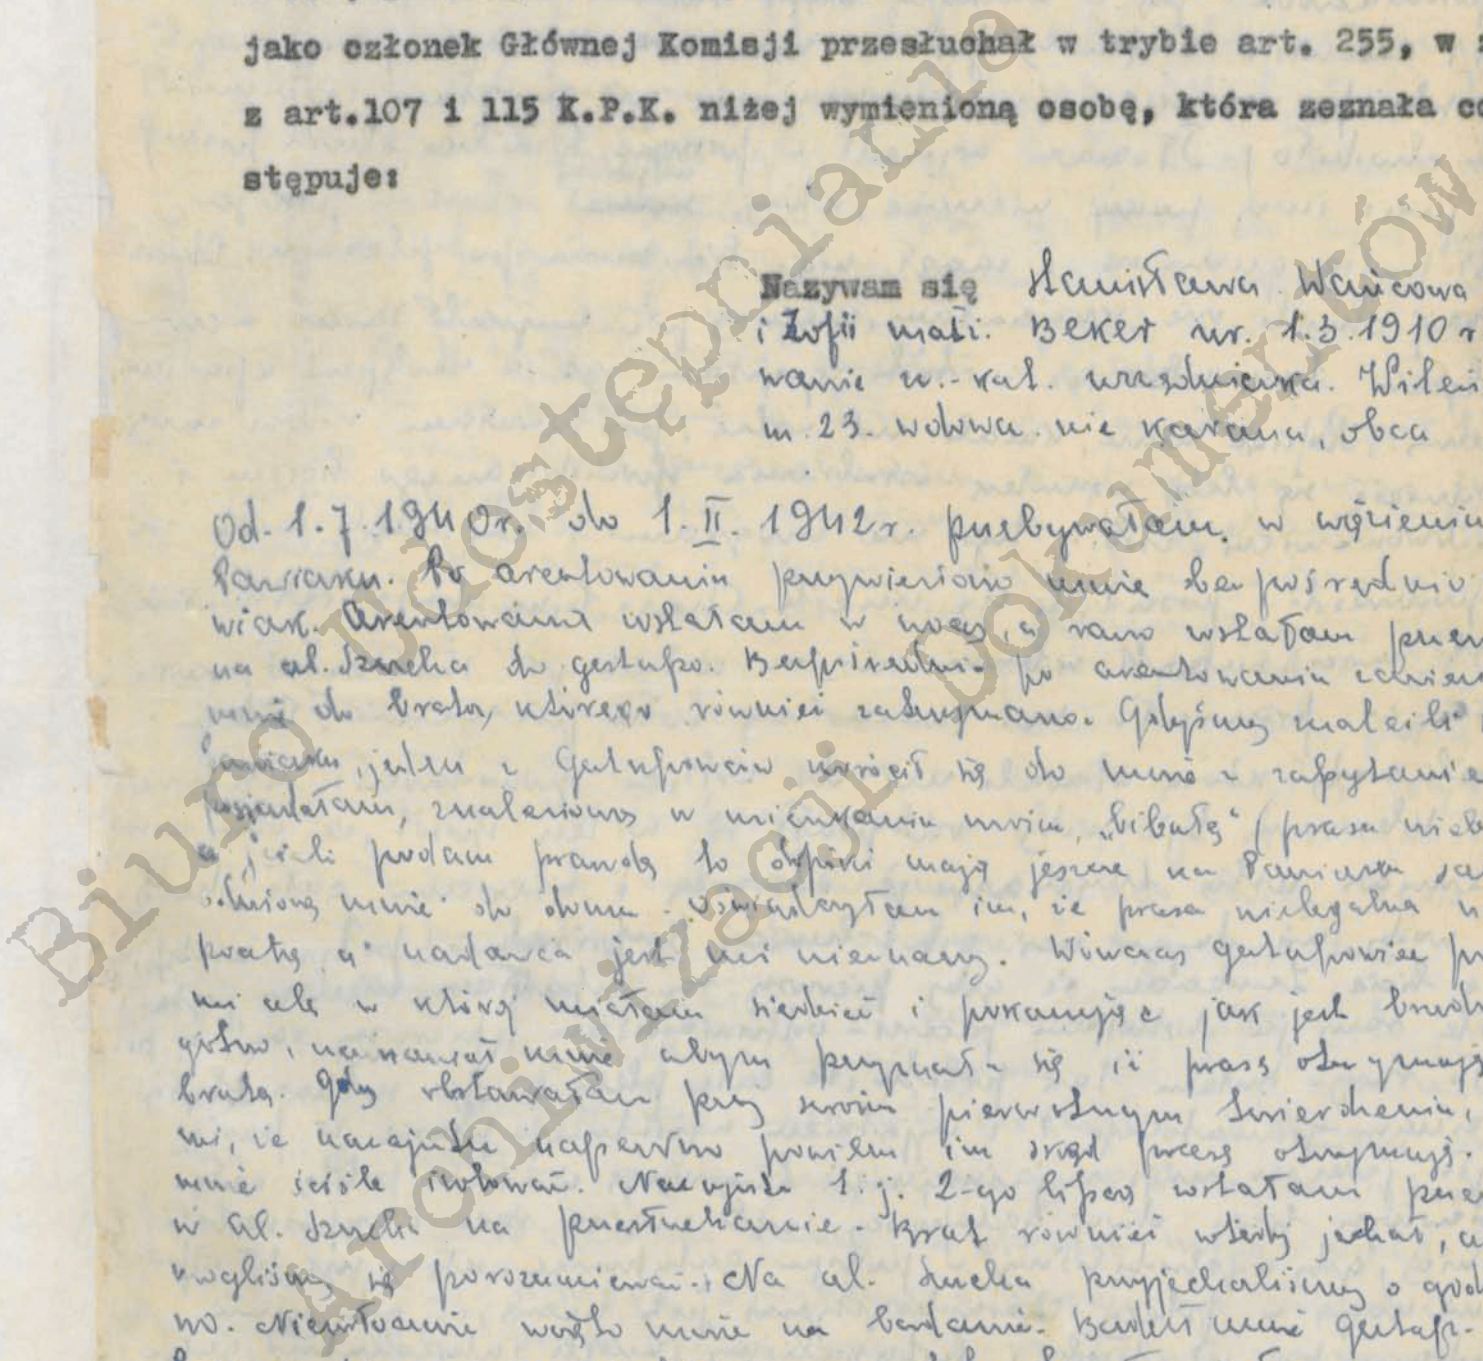 jako członek Głównej Komisji przesłuchał w trybie art. 255, w
z art.107 i 115 K.P.K. niżej wymienioną osobę, która zeznała co
stępuje:
Nazywam się Stanisława Wańcowa
i Zofii małż. Beker ur. 1.3.1910 r
wanie u.-kat. urzędniczka. Wileń
m. 23. wdowa. nie karana, obca
Od. 1.7.1940r. do 1.II.1942r. przebywałam w więzieniu
Pawiaku. Po aresztowaniu przywieziono mnie bezpośrednio
wiak. Aresztowana zostałam w nocy, a rano zostałam prze
na al. Szucha do gestapo. Bezpośrednio po aresztowaniu
do brata, którego również zatrzymano. Gdyśmy znaleźli
jeden z Gestapowców zwrócił się do mnie z zapytanie
posiadałam, znalezioną w mieszkaniu moim, „bibułę" (prasa niel
jeżeli podam prawdę to mają jeszcze na Pawiaku
odwiozą mnie do domu. Oświadczyłam im, że prasa nielegalna
pocztą a nadawca jest mi nieznany. Wówczas gestapowiec
mi celę w której miałam siedzieć i pokazując jak jest brudn
mnie abym przyznała się, iż prasę otrzymuję
brata. Gdy obstawałam przy swoim pierwotnym twierdzeniu,
mi, że nazajutrz napewno powiem im skąd prasę otrzymuję.
mnie ściśle izolować. Nazajutrz t.j. 2-go lipca zostałam prze
w al. Szucha na przesłuchanie. Brat również wtedy jechał, a
mogliśmy się porozumiewać. Na al. Szucha przyjechaliśmy o god
no. wzięto mnie na badanie. Badał mnie Gestap-
Biuro Udostępniania
i Archiwizacji Dokumentów